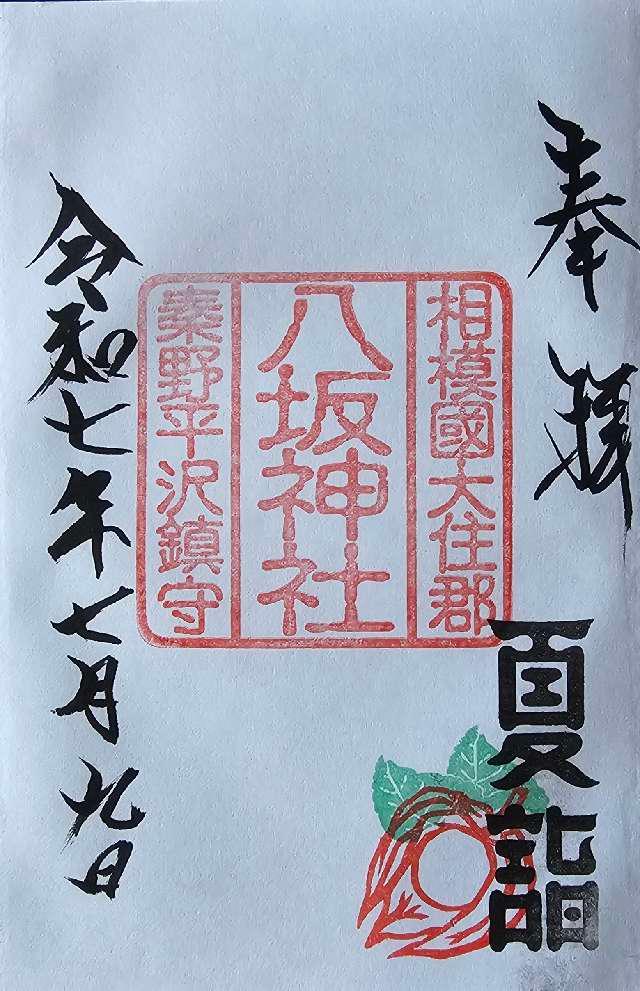 奉拝
夏詣
相模國大住郡
八坂神社
秦野平沢鎮守
令和七年七月九日